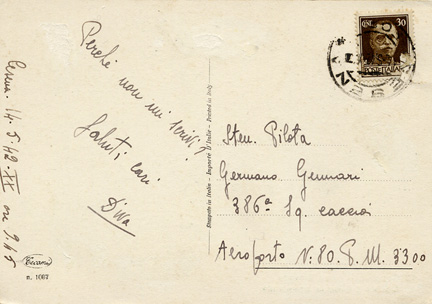 Cesena. 14. 5. 42. XX ore 9.45
Perché
non mi scrivi?
Saluti cari
Diva
CENT. 30
POSTE ITALIANE
Stampato in Italia - Imprimé in Italie - Printed in Italy
Sten. Pilota
Germano Gennari
386ª Sq. caccia
Aeroporto N. 80. P. M. 3300
n. 1067